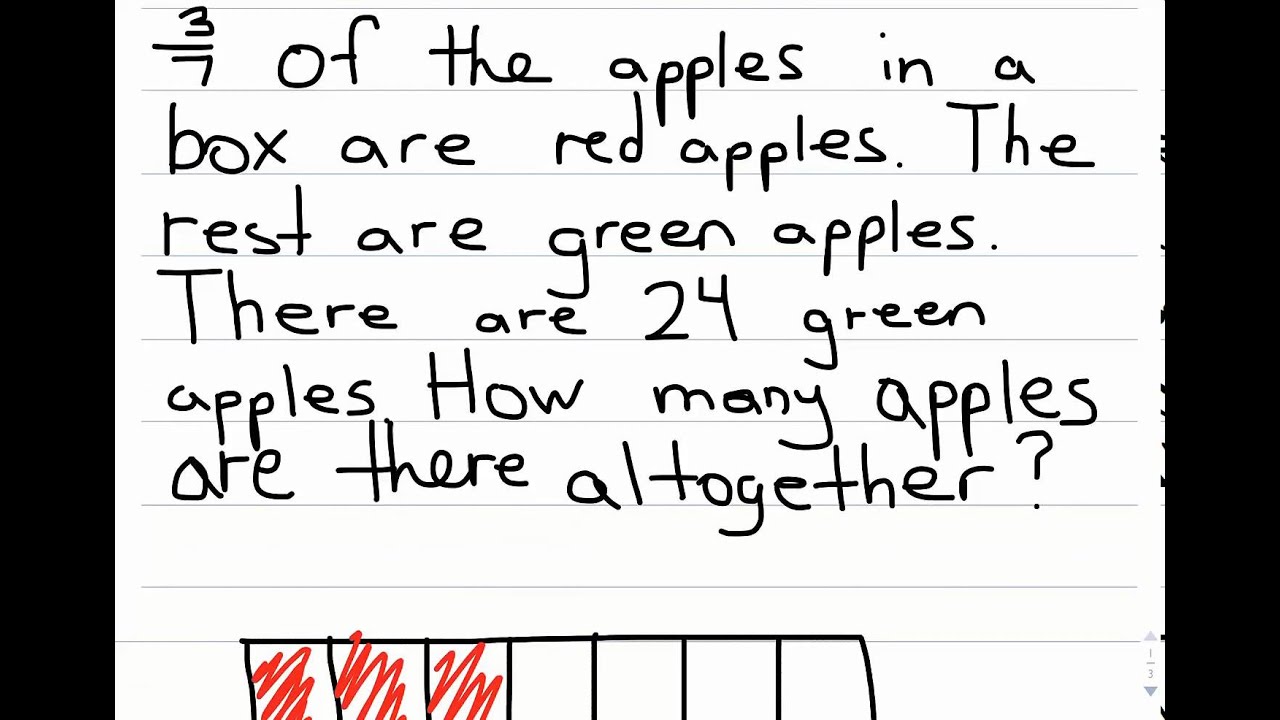 3/7 of the apples in a
box are red apples. The
rest are green apples.
There are 24 green
apples. How many apples
are there altogether?
1
3